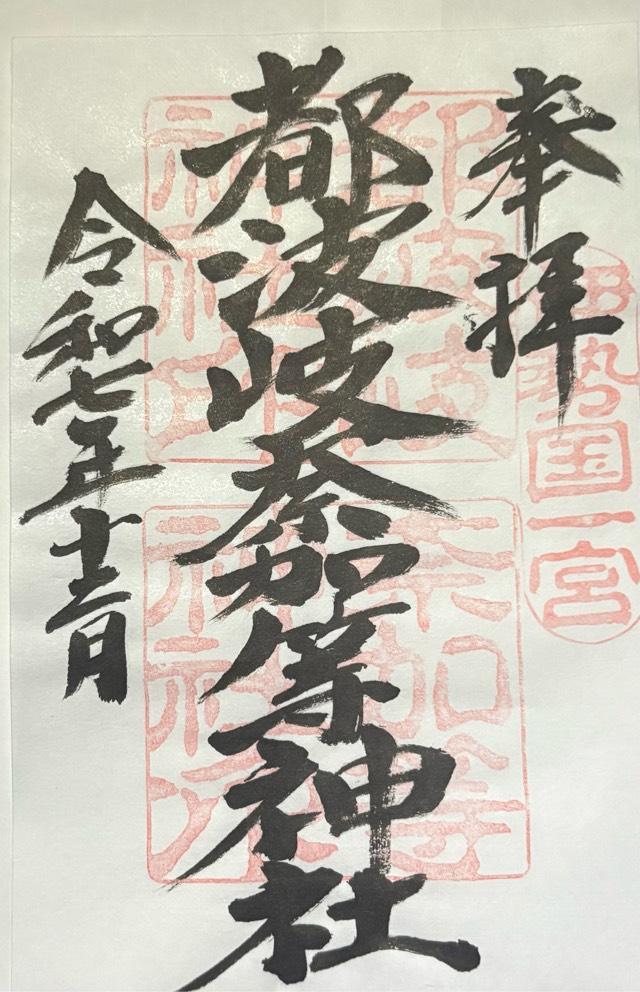 奉拝
伊勢国一宮
都波岐奈加等神社
都波岐
神社印
奈加等
神社
令和七年十二月